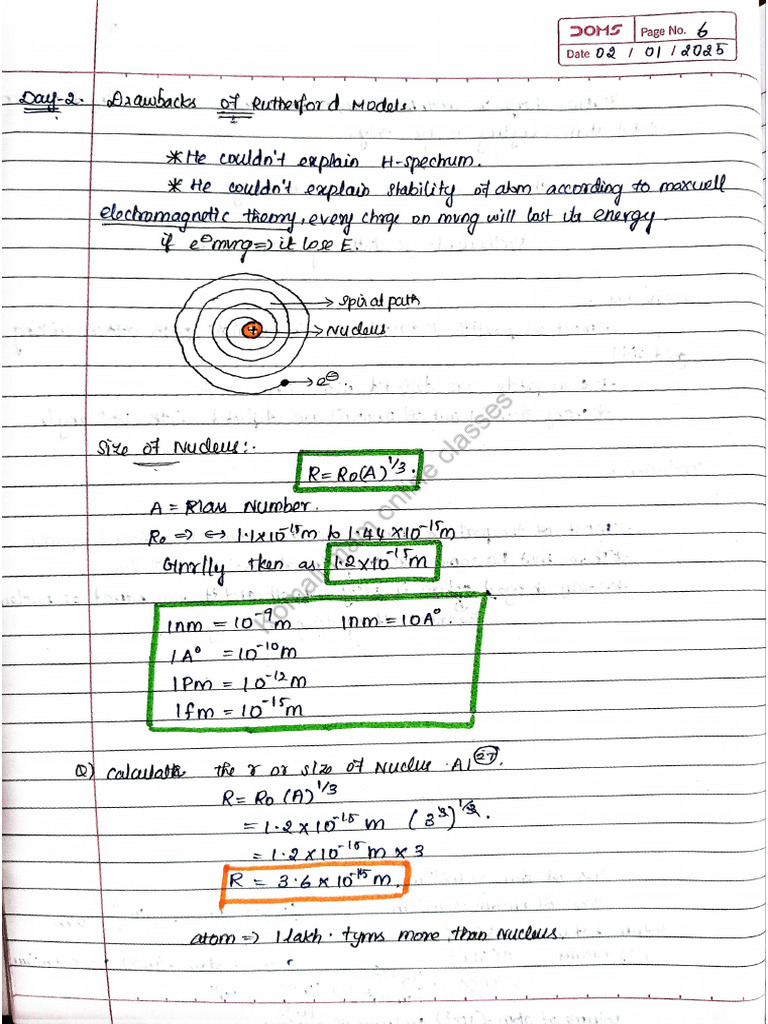 DOMS Page No. 6
Date 02 / 01 / 2025
Day-2. Drawbacks of Rutherford Models.
*He couldn't explain H-spectrum.
*He couldn't explain stability of atom according to maxwell
electromagnetic theory, every chrge on mvng will lost its energy.
if e⊖ mvng => it lose E.
→ Spiral path
+ → Nucleus
→ e⊖.
Size of Nucleus:.
R = R0(A)^1/3.
A = Mass Number.
R0 => ↔ 1.1×10^-15m to 1.44×10^-15m
Ginrlly tken as 1.2×10^-15m
1nm = 10^-9m 1nm = 10A°.
1A° = 10^-10m
1Pm = 10^-12m
1fm = 10^-15m
Q) calculate the r or size of Nuclus. Al 27.
R = R0 (A)^1/3
= 1.2×10^-15 m (3^3)^1/3.
= 1.2×10^-15 m × 3
R = 3.6×10^-15m.
atom => 1 lakh. tyms more than Nucleus.
Komal mam online classes